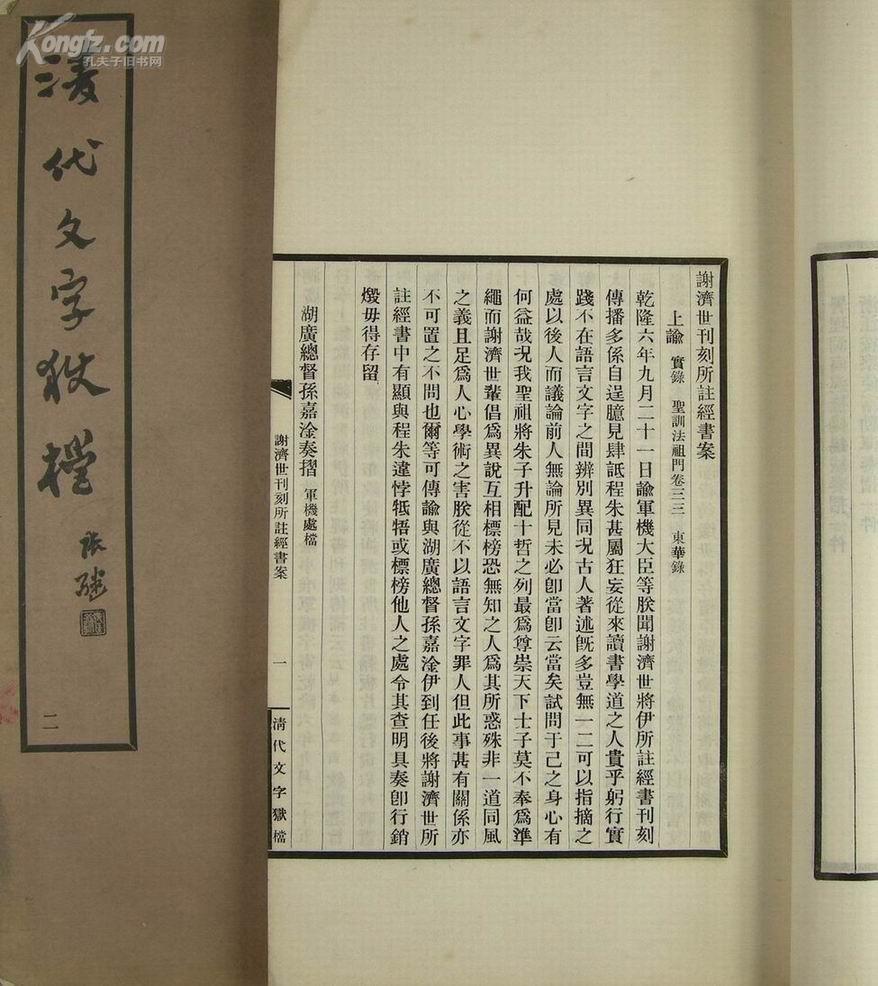 Kongfz.com
孔夫子旧书网
清代文字狱檔
張繼
二
謝濟世刊刻所註經書案
上諭 實錄 聖訓法祖門卷三三 東華錄
乾隆六年九月二十一日諭軍機大臣等朕聞謝濟世將伊所註經書刊刻
傳播多係自逞臆見肆詆程朱甚屬狂妄從來讀書學道之人貴乎躬行實
踐不在語言文字之間辨別異同况古人著述旣多豈無一二可以指摘之
處以後人而議論前人無論所見未必卽當卽云當矣試問于己之身心有
何益哉况我聖祖將朱子升配十哲之列最爲尊崇天下士子莫不奉爲準
繩而謝濟世輩倡爲異說互相標榜恐無知之人爲其所惑殊非一道同風
之義且足爲人心學術之害朕從不以語言文字罪人但此事甚有關係亦
不可置之不問也爾等可傳諭與湖廣總督孫嘉淦伊到任後將謝濟世所
註經書中有顯與程朱違悖牴牾或標榜他人之處令其查明具奏卽行銷
燬毋得存留
湖廣總督孫嘉淦奏摺 軍機處檔
謝濟世刊刻所註經書案
一
清代文字獄檔